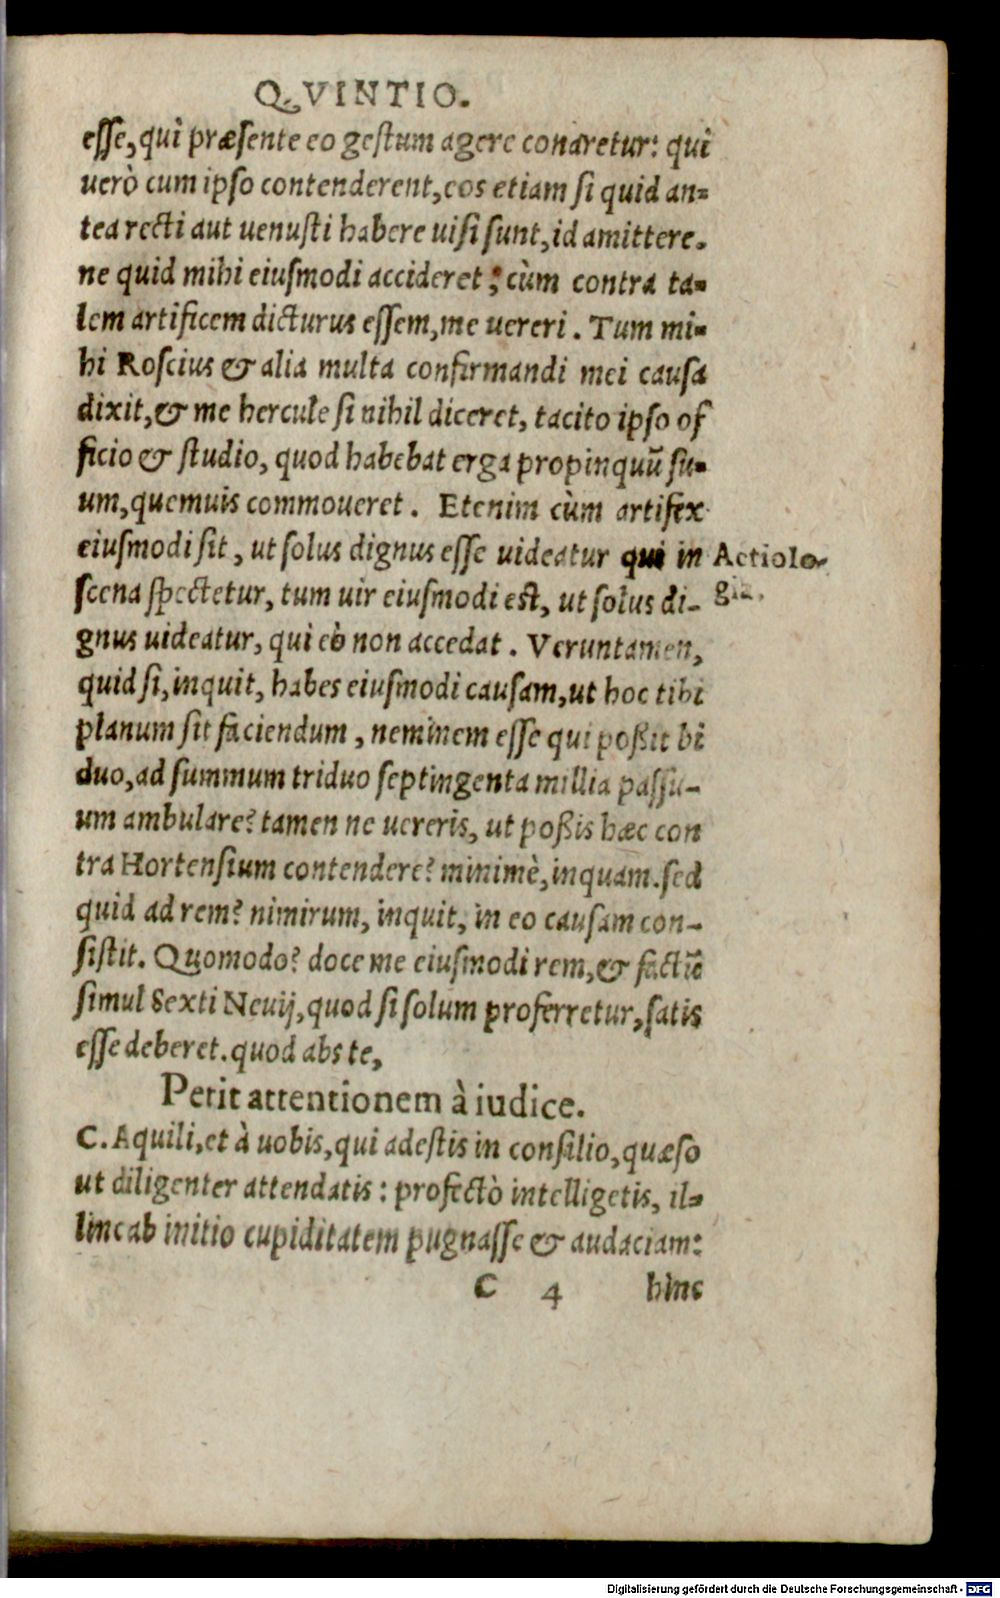 QVINTIO.
esse, qui præsente eo gestum agere conaretur: qui
uerò cum ipso contenderent, eos etiam si quid an-
tea recti aut uenusti habere uisi sunt, id amittere.
ne quid mihi eiusmodi accideret; cùm contra ta-
lem artificem dicturus essem, me uereri. Tum mi-
hi Roscius & alia multa confirmandi mei causa
dixit, & me hercule si nihil diceret, tacito ipso of
ficio & studio, quod habebat erga propinquū su-
um, quemuis commoueret. Etenim cùm artifex
eiusmodi sit, ut solus dignus esse uideatur qui in
Aetiolo-
scena spectetur, tum uir eiusmodi est, ut solus di-
gia.
gnus uideatur, qui eò non accedat. Veruntamen,
quid si, inquit, habes eiusmodi causam, ut hoc tibi
planum sit faciendum, neminem esse qui poßit bi
duo, ad summum triduo septingenta millia passu-
um ambulare? tamen ne uereris, ut poßis hæc con
tra Hortensium contendere? minimè, inquam. sed
quid ad rem? nimirum, inquit, in eo causam con-
sistit. Quomodo? doce me eiusmodi rem, & factū
simul Sexti Neuij, quod si solum proferretur, satis
esse deberet. quod abs te,
Petit attentionem à iudice.
C. Aquili, et à uobis, qui adestis in consilio, quæso
ut diligenter attendatis: profectò intelligetis, il-
linc ab initio cupiditatem pugnasse & audaciam:
C 4 hinc
Digitalisierung gefördert durch die Deutsche Forschungsgemeinschaft - DFG